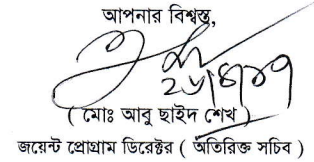 আপনার বিশ্বস্ত,
( মোঃ আবু ছাইদ শেখ )
জয়েন্ট প্রোগ্রাম ডিরেক্টর ( অতিরিক্ত সচিব )